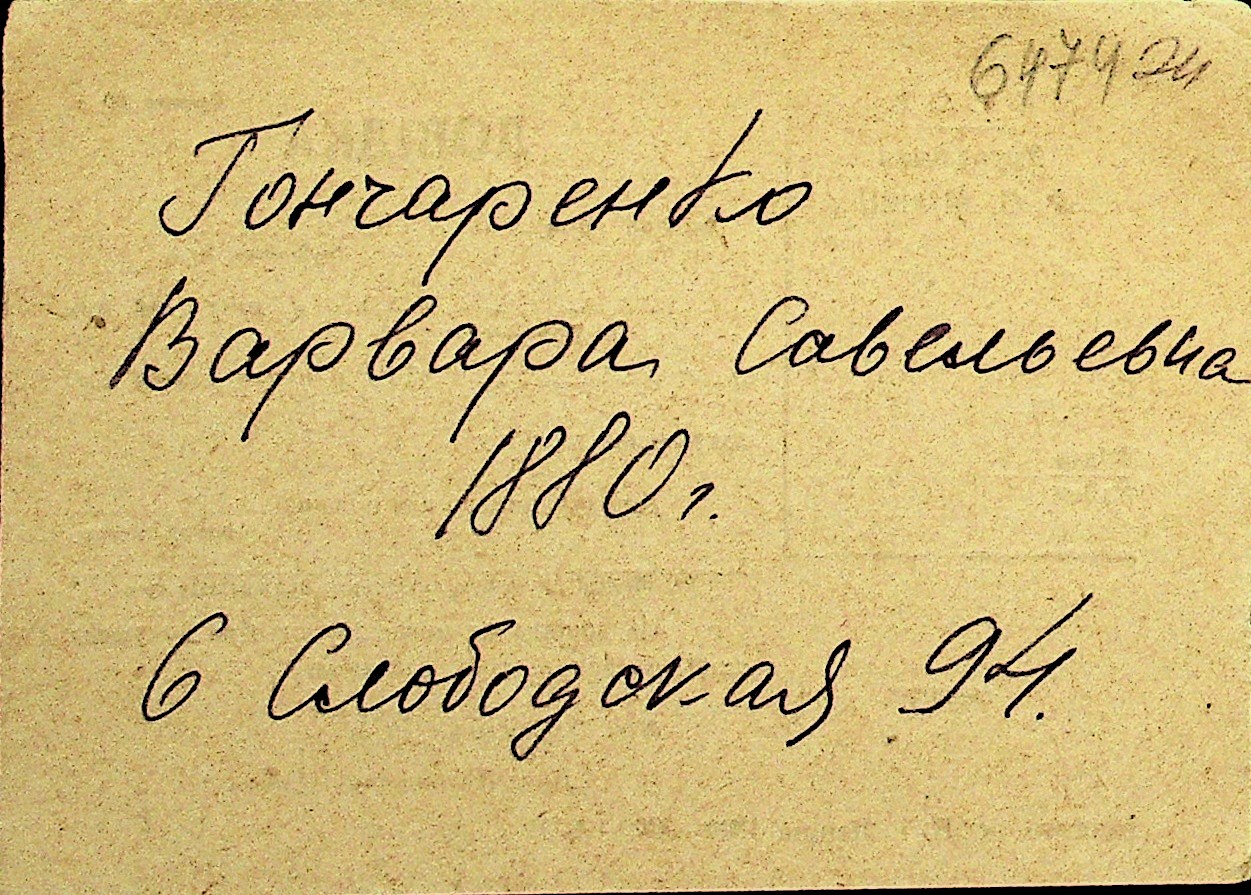 6474
Гончаренко
Варвара Савельевна
1880 г.
6 Слободская 94.